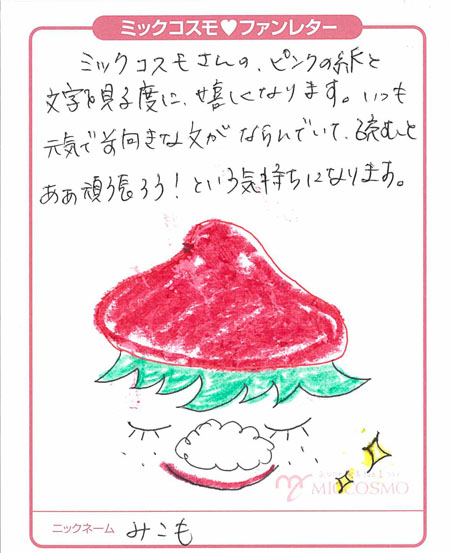 ミックコスモ♥ファンレター
ミックコスモさんの、ピンクの紙と
文字を見る度に、嬉しくなります。いつも
元気で前向きな文がならんでいて、読むと
ああ頑張ろう！という気持ちになります。
MICCOSMO
ニックネーム みこも